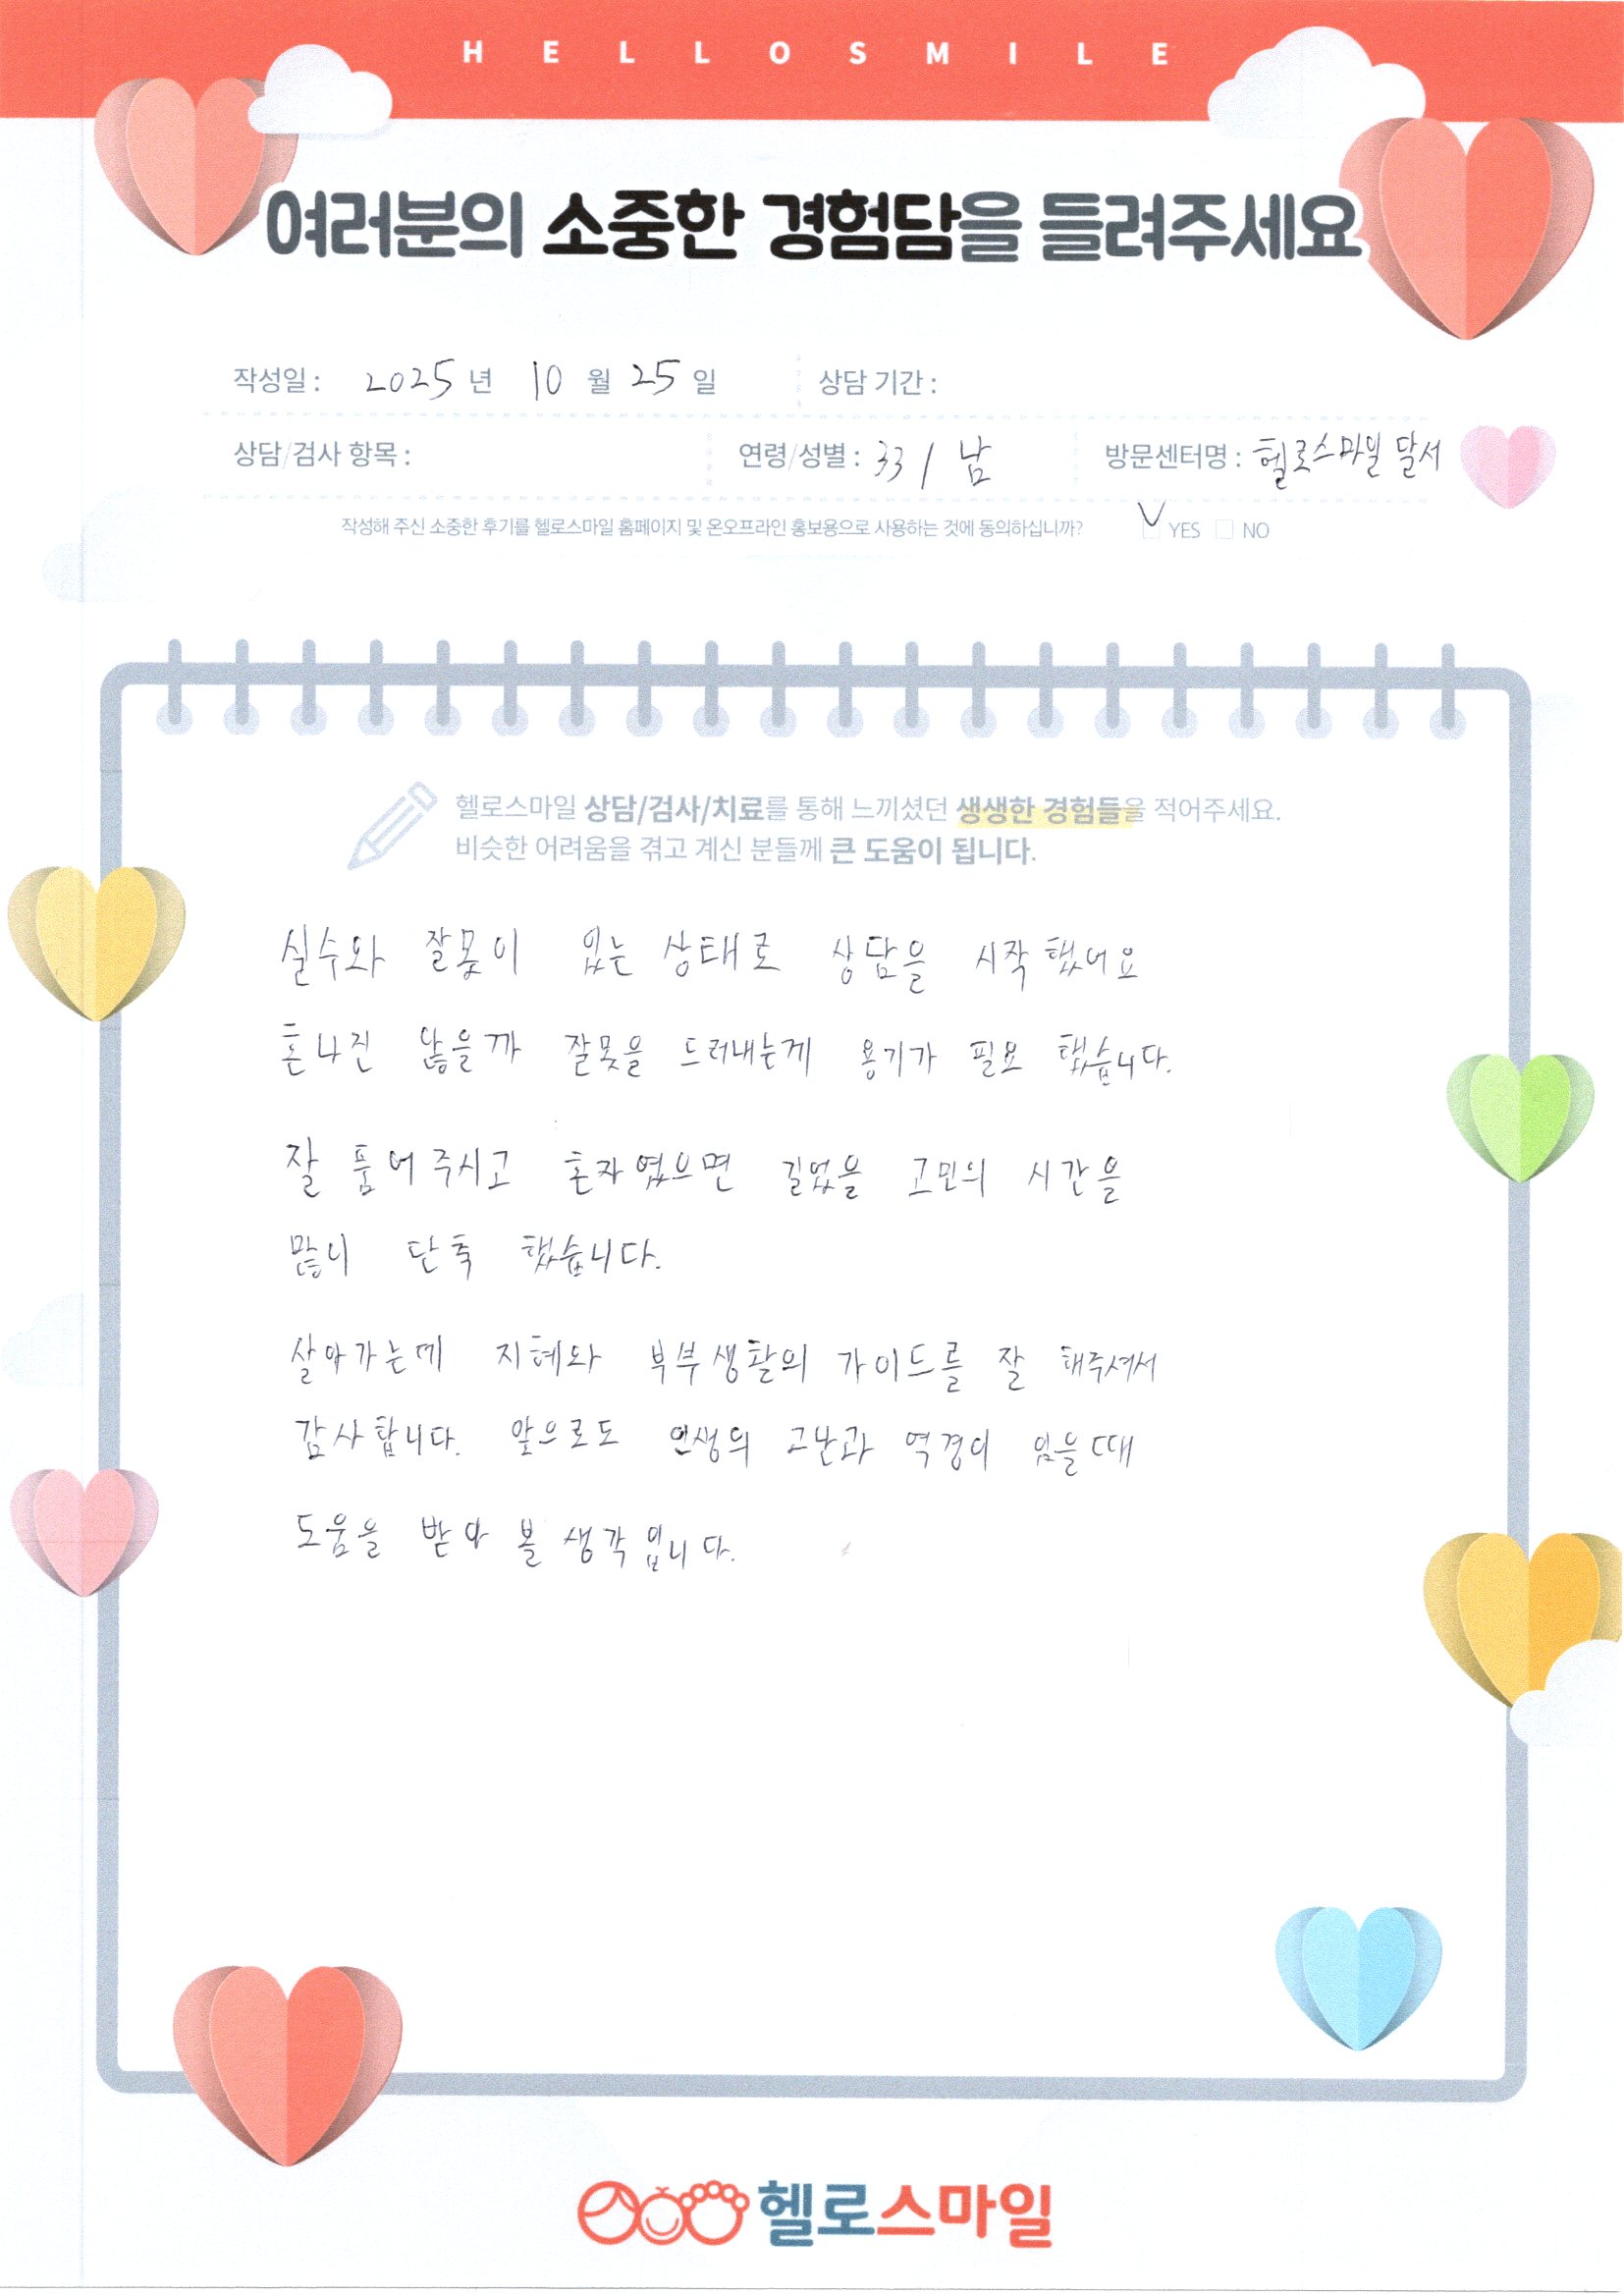 HELLOSMILE
여러분의 소중한 경험담을 들려주세요
작성일 : 2025 년 10 월 25 일 상담 기간 :
상담/검사 항목 : 연령/성별 : 33 / 남 방문센터명 : 헬로스마일 달서
작성해 주신 소중한 후기를 헬로스마일 홈페이지 및 온오프라인 홍보용으로 사용하는 것에 동의하십니까? YES NO
헬로스마일 상담/검사/치료를 통해 느끼셨던 생생한 경험들을 적어주세요.
비슷한 어려움을 겪고 계신 분들께 큰 도움이 됩니다.
실수와 잘못이 있는 상태로 상담을 시작했어요
혼나진 않을까 잘못을 드러내는게 용기가 필요 했습니다.
잘 품어주시고 혼자였으면 길었을 고민의 시간을
많이 단축 했습니다.
살아가는데 지혜와 부부생활의 가이드를 잘 해주셔서
감사합니다. 앞으로도 인생의 고난과 역경이 있을때
도움을 받아 볼 생각입니다.
헬로스마일